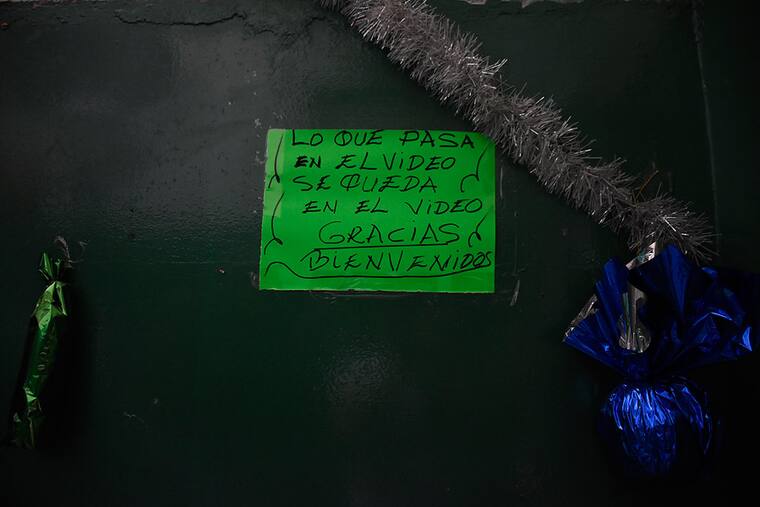 LO QUE PASA
EN EL VIDEO
SE QUEDA
EN EL VIDEO
GRACIAS
BIENVENIDOS